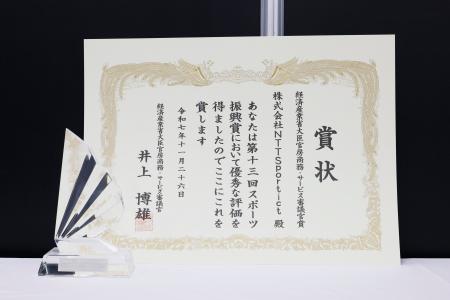 賞状
経済産業省大臣官房商務・サービス審議官賞
株式会社NTTSportict 殿
あなたは第十三回スポーツ
振興賞において優秀な評価を
得ましたのでここにこれを
賞します
令和七年十一月二十六日
経済産業省大臣官房商務・サービス審議官
井上 博雄